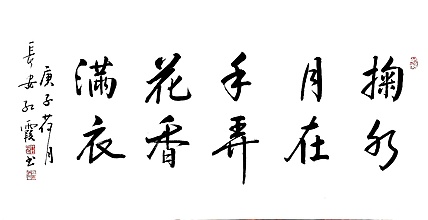 掬水
月在
手弄
花香
满衣
庚子荷月
长安红霞书